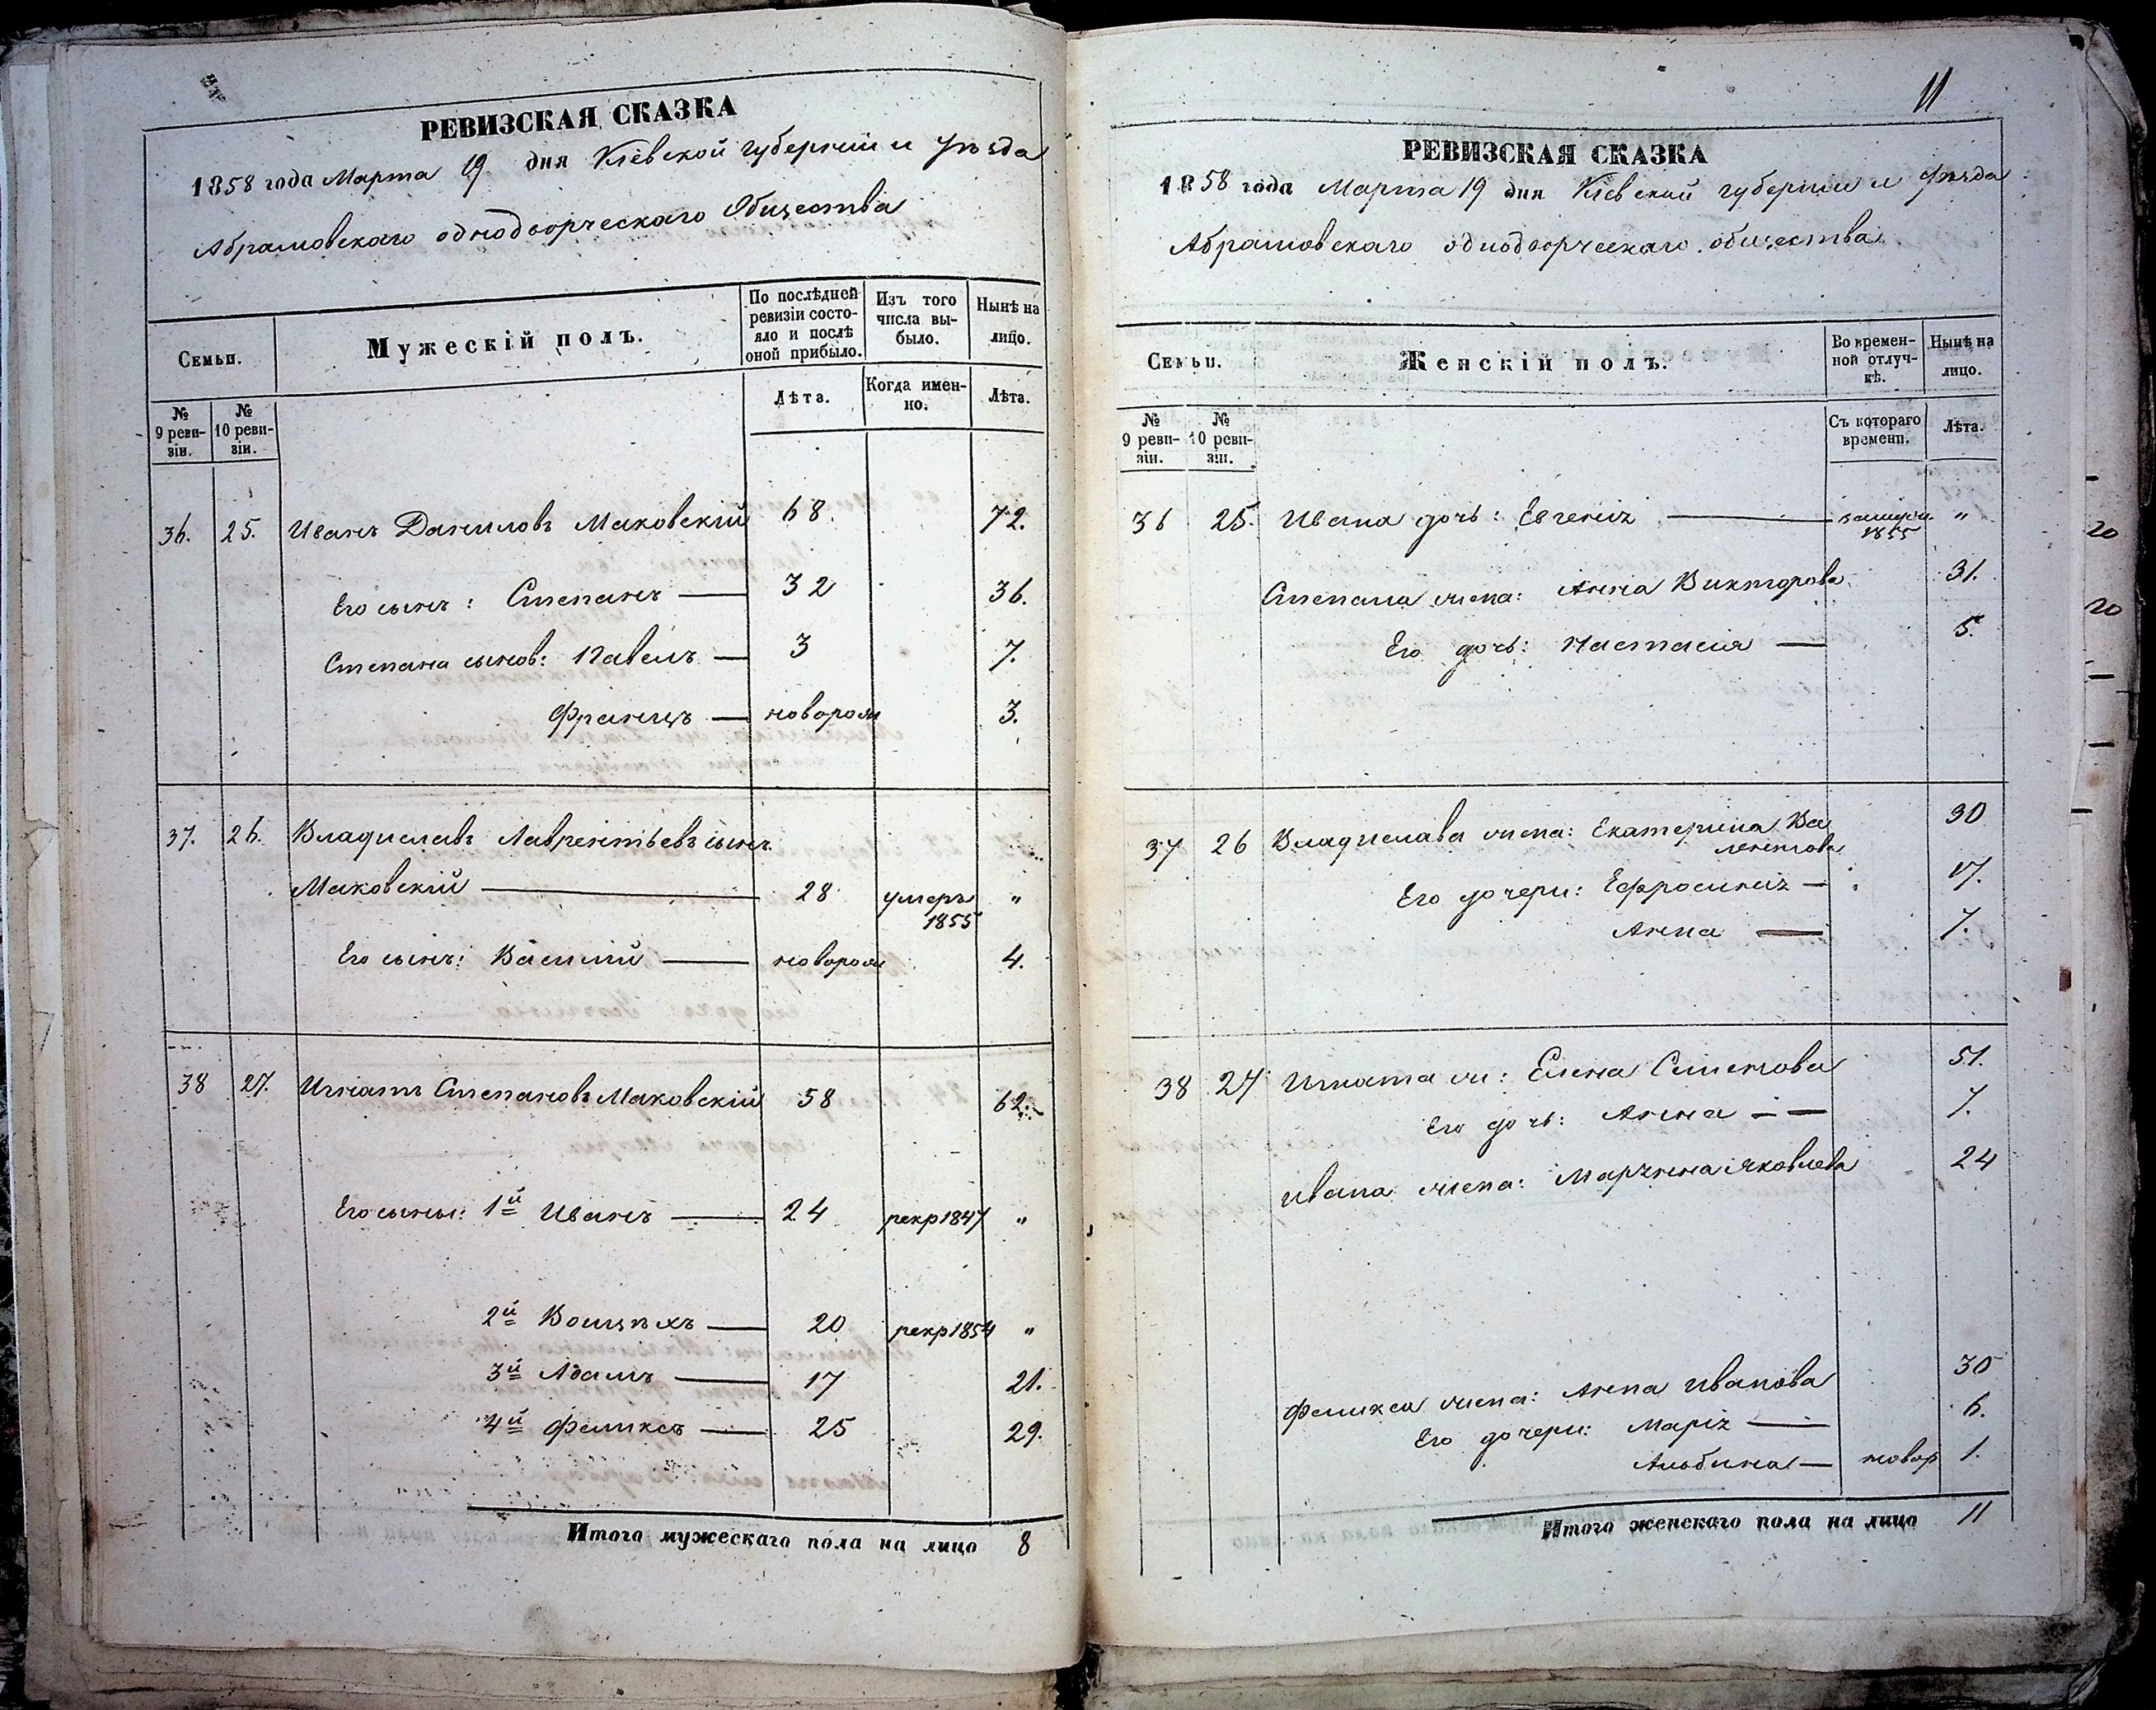 РЕВИЗСКАЯ СКАЗКА
1858 года Марта 19 дня Кіевской губерніи и уѣзда
Абрамовскаго однодворческаго Общества
Семьи.
Мужескій полъ.
По послѣдней ревизіи состояло и послѣ оной прибыло.
Изъ того числа выбыло.
Нынѣ на лицо.
№ 9 ревизіи.
№ 10 ревизіи.
Лѣта.
Когда именно.
Лѣта.
36. 25. Иванъ Даниловъ Маковскій 68. 72.
Его сынъ: Степанъ — 32 36.
Степана сынов: Павелъ — 3 7.
Францъ —новорож 3.
37. 26. Владиславъ Лаврентьевъ сынъ
Маковскій — 28 умеръ 1855 "
Его сынъ: Василій — новорож 4.
38 27. Игнатъ Степановъ Маковскій 58 62.
Его сыны: 1й Иванъ — 24 рекр 1847 "
2й Войцѣхъ — 20 рекр 1854 "
3й Адамъ — 17 21.
4й Феликсъ — 25 29.
Итого мужескаго пола на лицо 8
11
РЕВИЗСКАЯ СКАЗКА
1858 года Марта 19 дня Кіевской губерніи и уѣзда
Абрамовскаго однодворческаго общества
Семьи.
Женскій полъ.
Во временной отлучкѣ.
Нынѣ на лицо.
№ 9 ревизіи.
№ 10 ревизіи.
Съ котораго времени.
Лѣта.
36 25. Ивана дочь: Евгенія — 1855 "
Степана жена: Анна Викторова 31.
Его дочь: Настасія — 5.
37 26 Владислава жена: Екатерина Валентова 30
Его дочери: Ефросинія — 17.
Анна — 7.
38 27 Игната ж: Елена Семенова 51.
Его дочь: Анна — — 7.
Ивана жена: Маріяна Яковлева 24
Феликса жена: Анна Иванова 30
Его дочери: Марія — 6.
Альбина — новор 1.
Итого женскаго пола на лицо 11
20
20